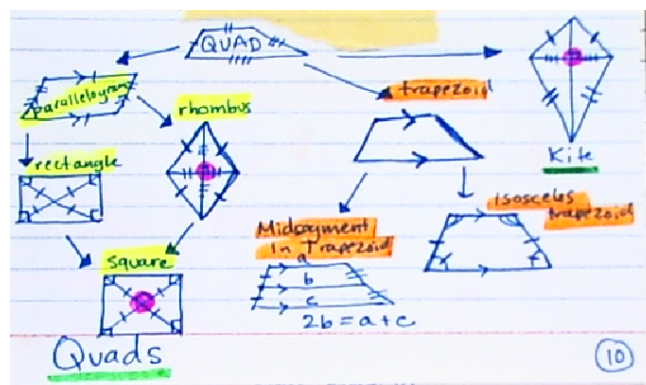 QUAD
parallelogram
rhombus
trapezoid
Kite
rectangle
isosceles
trapezoid
Midsegment
In Trapezoid
square
a
b
c
2b = a + c
Quads
10